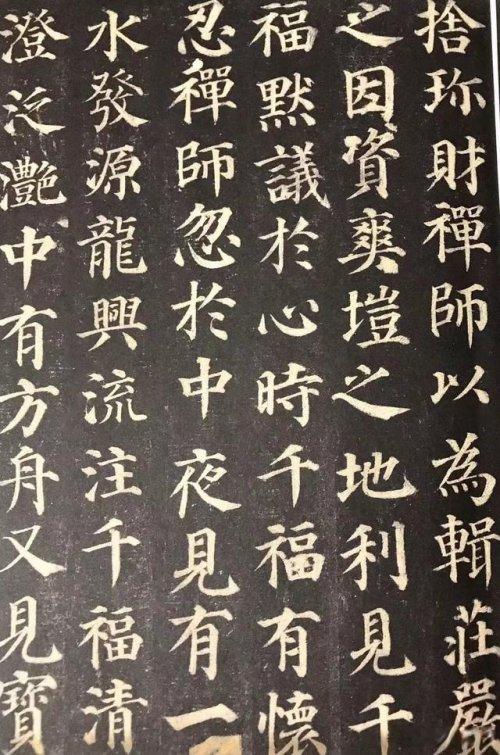 捨珎財禪師以為輯莊嚴
之因資爽塏之地利見千
福默議於心時千福有懷
忍禪師忽於中夜見有一
水發源龍興流注千福清
澄泛灧中有方舟又見寶